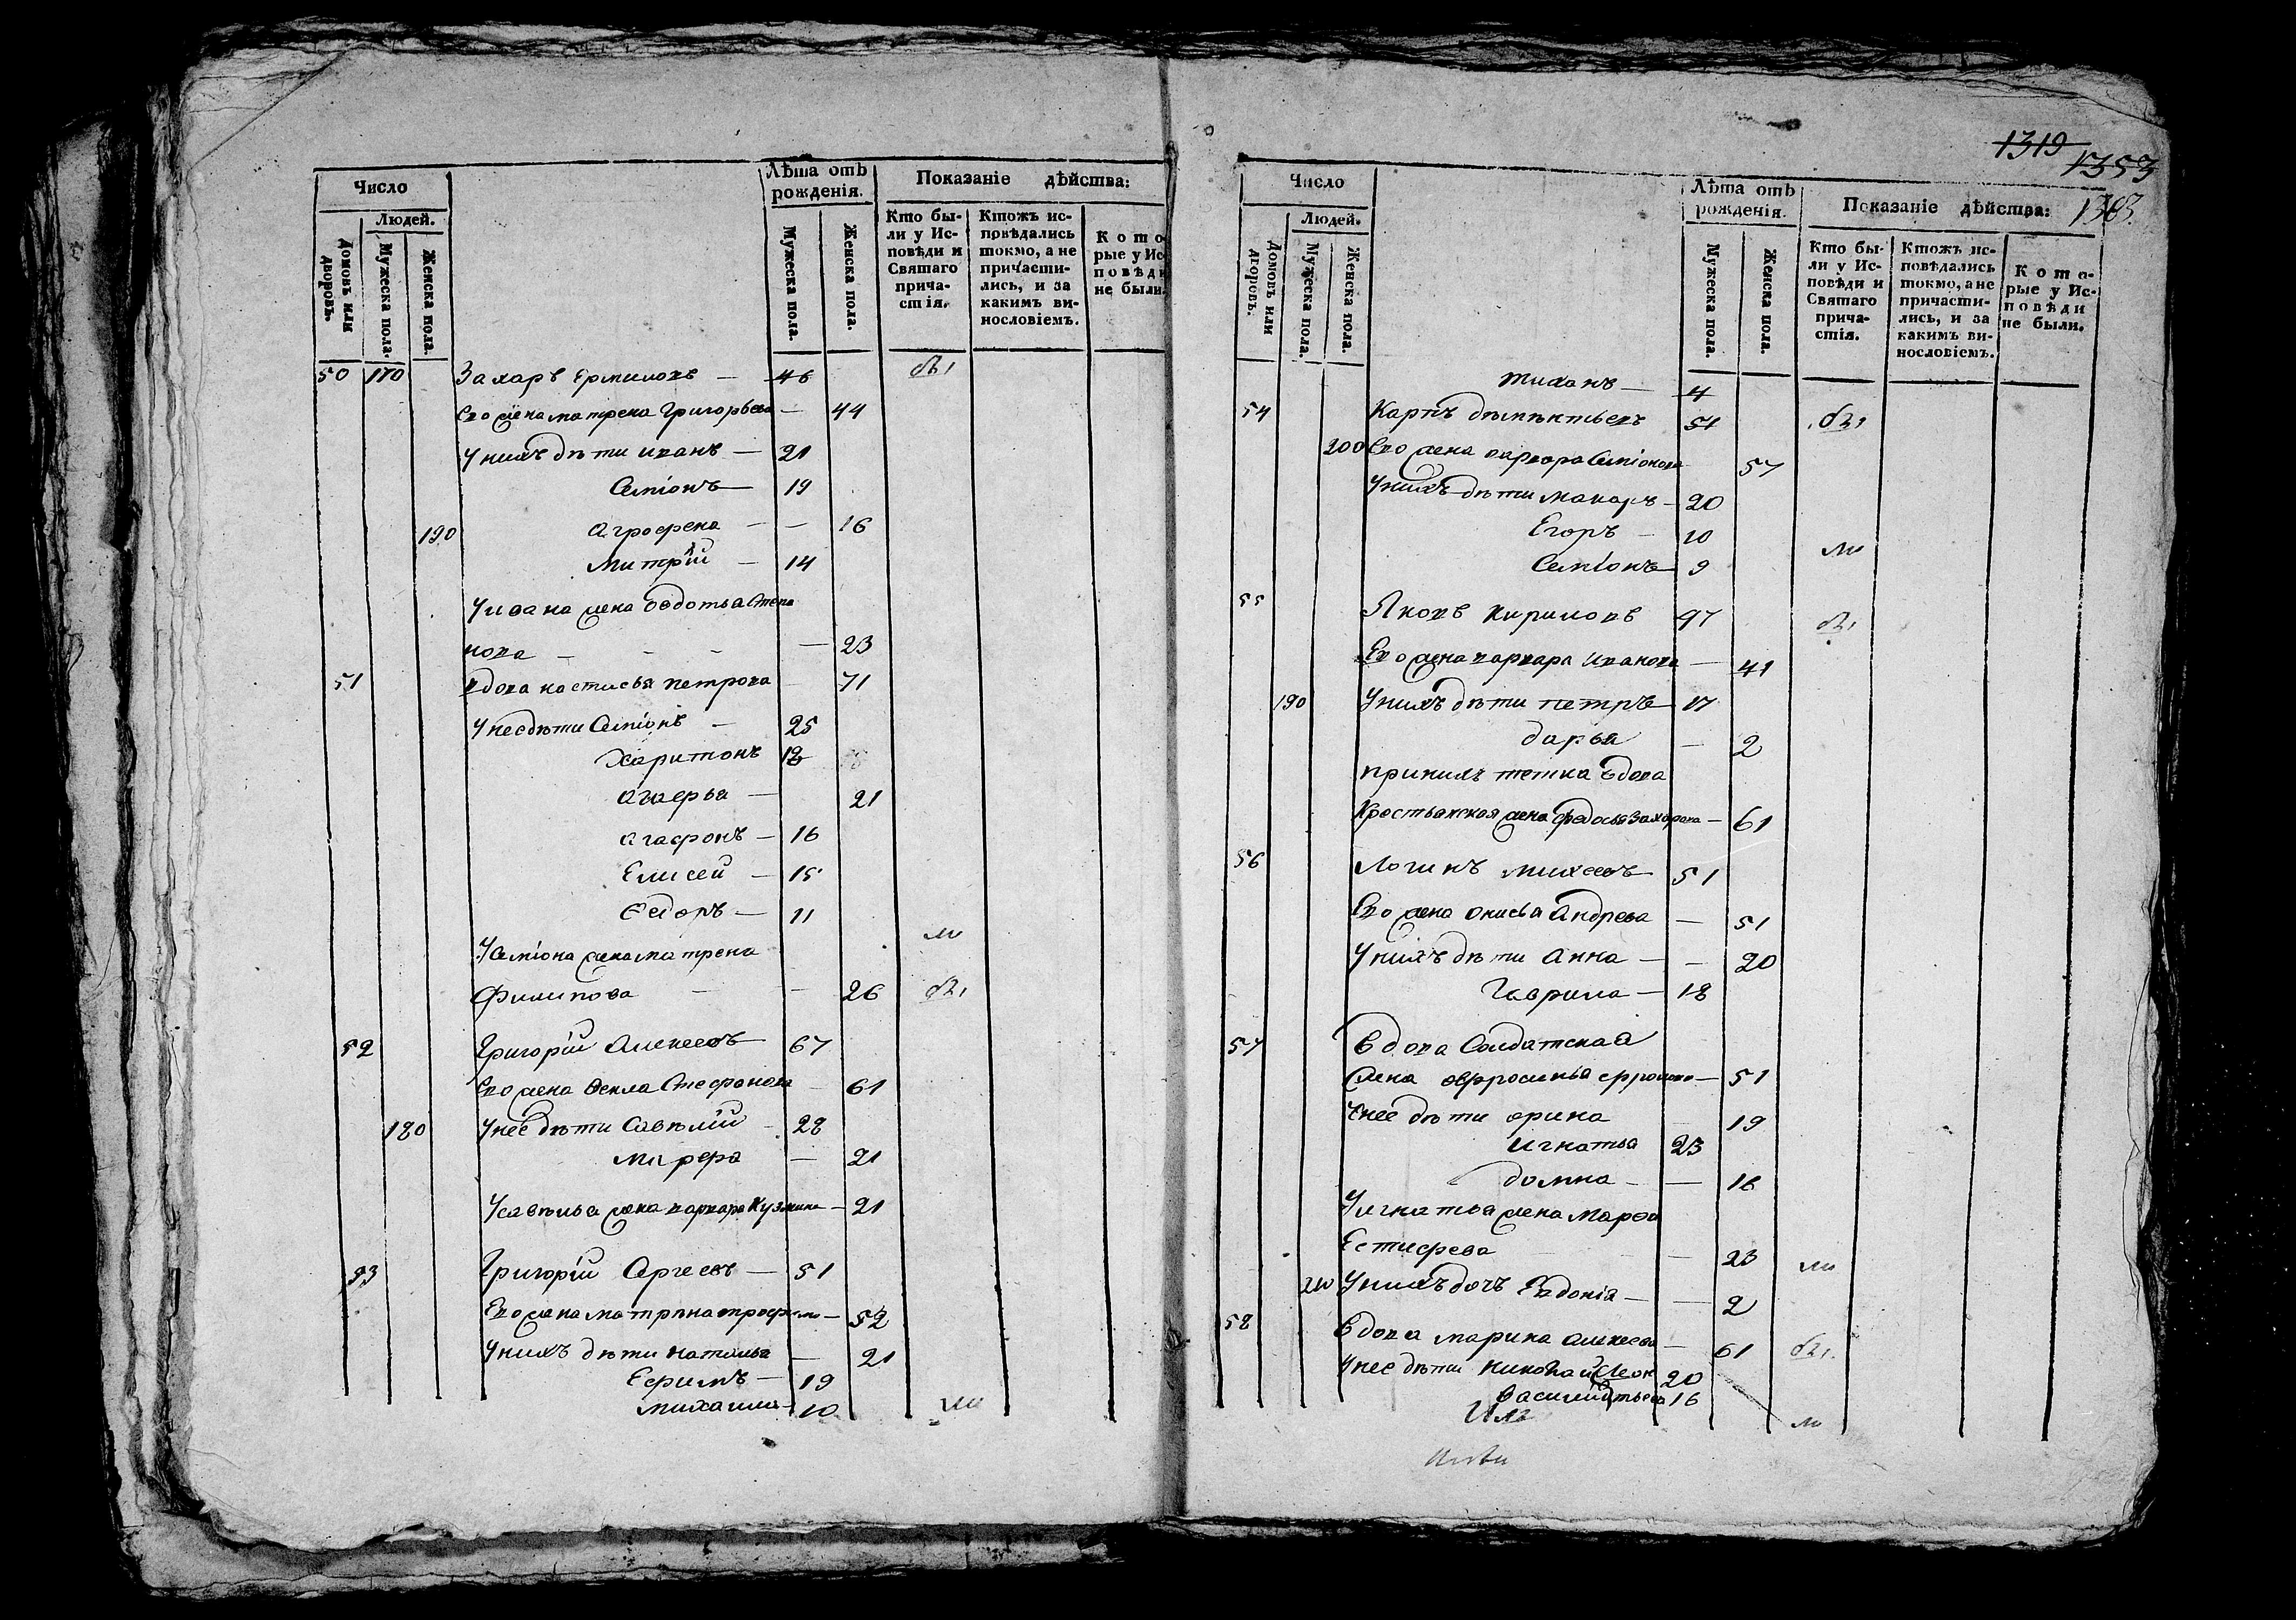 Число
Людей.
Домовъ или дворовъ.
Мужеска пола.
Женска пола.
Лѣта отъ рожденія.
Мужеска пола.
Женска пола.
Показаніе дѣйства:
Кто бы-
ли у Ис-
повѣди и
Святаго
прича-
стія.
Ктожъ ис-
повѣдались
токмо, а не
причасти-
лись, и за
какимъ ви-
нословіемъ.
К о т о
рые у Ис
п о в ѣ д и
не были.
50 170 Захаръ Ермиловъ — 46 бы
Ево жена матрена Григорьева — 44
У нихъ дѣти иванъ — 21
Семіонъ — 19
190 Агрофена — — 16
Митрій — 14
У ивана жена овдотья Степа
нова — — — — 23
51 вдова настасья петрова — 71
У нее дѣти Семіонъ — 25
Харитонъ 18
21
агафонъ — 16
Елисей — 15
Ѳедоръ — 11
У Семіона жена матрена
ми
Филипова — — 26 бы
52 Григорій Алексеевъ — 67
Ево жена Ѳекла Стефанова — 61
180 У нее дѣти Савѣлій — 28
— 21
У савѣлья жена варвара Кузмина — 21
53 Григорій Сергеевъ — 51
Ево жена матрена трофимо — 52
У нихъ дѣти наталья — 21
Ефимъ — 19
михаила — 10 ми
1319
1353
1363
Число
Людей.
Домовъ или дворовъ.
Мужеска пола.
Женска пола.
Лѣта отъ рожденія.
Мужеска пола.
Женска пола.
Показаніе дѣйства:
Кто бы-
ли у Ис-
повѣди и
Святаго
прича-
стія.
Ктожъ ис-
повѣдались
токмо, а не
причасти-
лись, и за
какимъ ви-
нословіемъ.
К о т о-
рые у Ис-
п о в ѣ д и
не были.
тиханъ — 4
54 Карпъ 51 бы
200 Ево жена варвара Семіонова 57
У нихъ дѣти макаръ — 20
Егоръ — 10
ми
Семіонъ — 9
55 Яковъ кириловъ 47 бы
Ево жена варвара иванова — 41
190 У нихъ дѣти петръ — 17
дарья — 2
при нихъ тетка вдова
Крестьянская жена федосья Захарова — 61
56 Логинъ михеевъ — 51
Ево жена онисья Андреева — 51
У нихъ дѣти Анна — — 20
Гаврила — 18
57 Вдова Солдатская
жена офросинья — 51
У нее дѣти орина 19
игнатья 23
домна — — 16
У игнатья жена Марѳа
Естифева — 23 ми
210 У нихъ дочь Евдокія — — 2
58 Вдова марина алексеева — 61 бы
У нее дѣти николай 20
василій 16
ми